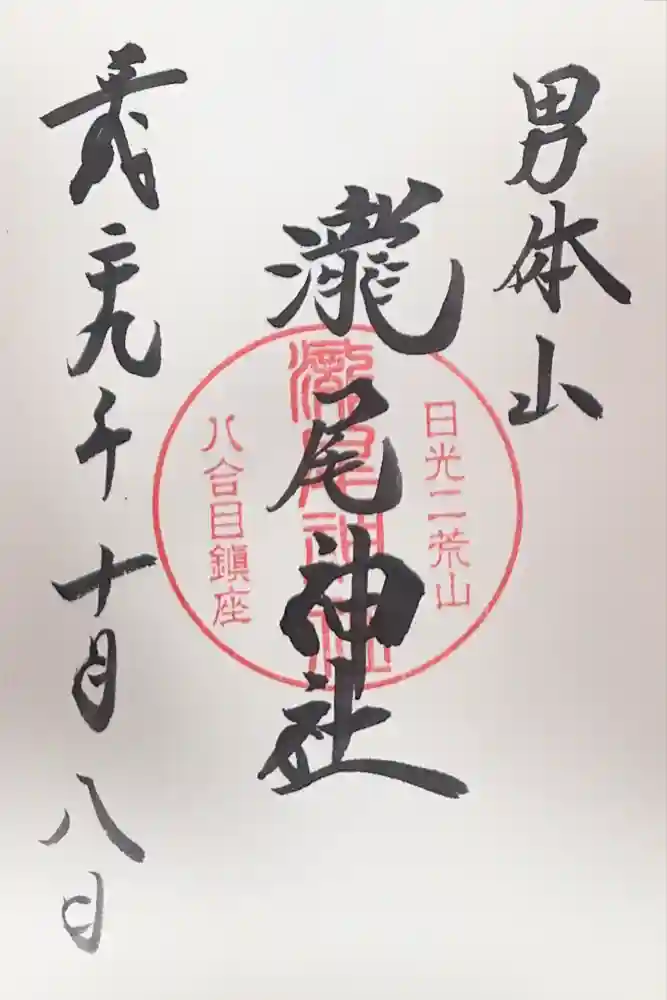 男体山
瀧尾神社
日光二荒山
瀧尾神社
八合目鎮座
平成二十九年十月八日